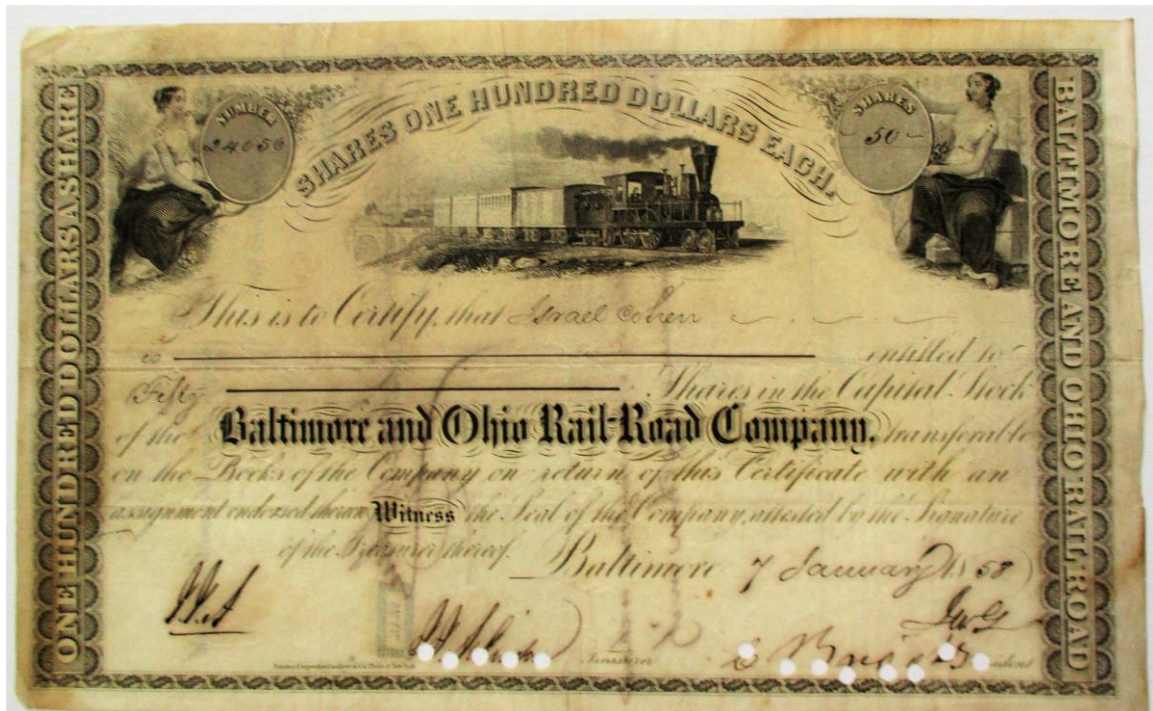 SHARES ONE HUNDRED DOLLARS EACH.
NUMBER
24056
SHARES
50
ONE HUNDRED DOLLARS A SHARE
BALTIMORE AND OHIO RAIL ROAD
This is to Certify, that Israel Cohen
is entitled to
Fifty Shares in the Capital Stock
of the Baltimore and Ohio Rail-Road Company. transferable
on the Books of the Company on return of this Certificate with an
assignment endorsed thereon Witness the Seal of the Company, attested by the Signature
of the Treasurer thereof. Baltimore 7 January 1858
Treasurer